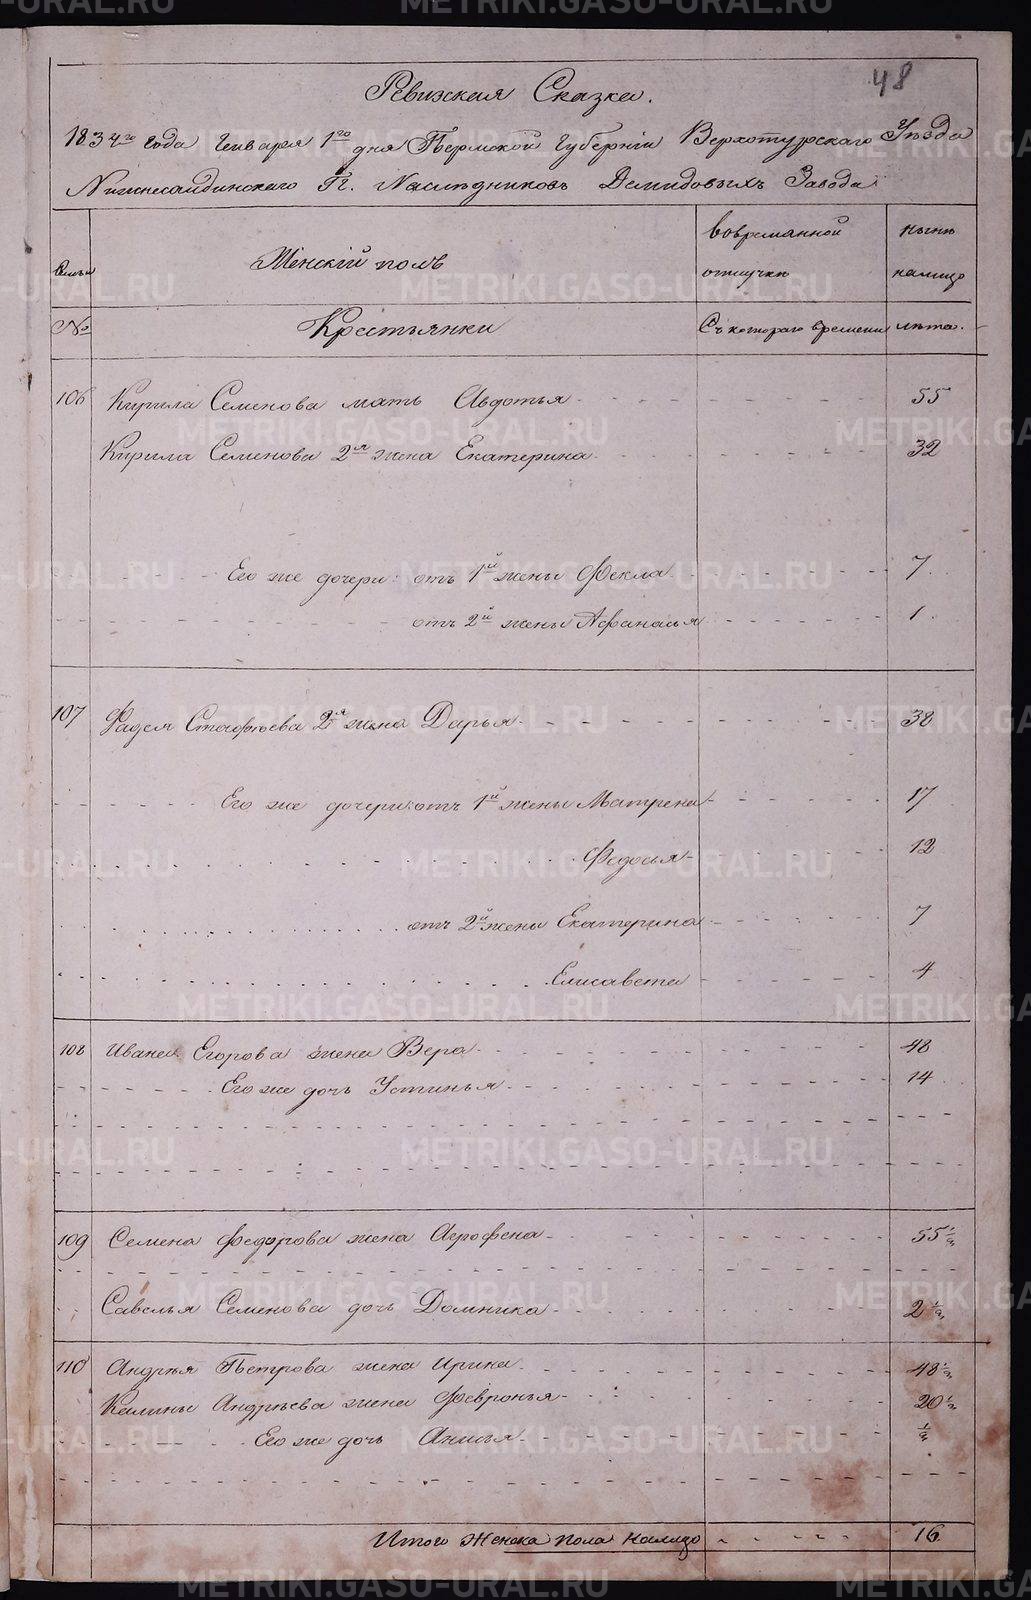 48
Ревизская Сказка.
1834го года Генваря 1го дня Пермской Губернiи Верхотурскаго Уѣзда
Нижнесалдинскаго Гг. Наслѣдниковъ Демидовыхъ Завода
Семьи
Женскiй полъ
вовременной отлучкѣ
нынѣ налицо
№
Крестьянки
Съ котораго времени
лѣта.
106 Кирила Семенова мать Авдотья 55
Кирила Семенова 2я жена Екатерина 32
Его же дочери: отъ 1й жены Фекла 7
отъ 2й жены Афанасья 1
107 Фадея Стафѣева 2я жена Дарья 38
Его же дочери: отъ 1й жены Матрена 17
Федосья 12
отъ 2й жены Екатерина 7
Елисавета 4
108 Ивана Егорова жена Вера 48
Его же дочь Устинья 14
109 Семена Федорова жена Агрофена 55 1/2
Савелья Семенова дочь Домника 2 1/2
110 Андрѣя Петрова жена Ирина 48 1/2
Калины Андрѣева жена Февронья 20 1/2
Его же дочь Анисья 1/2
Итого Женска пола налицо 16
METRIKI.GASO-URAL.RU